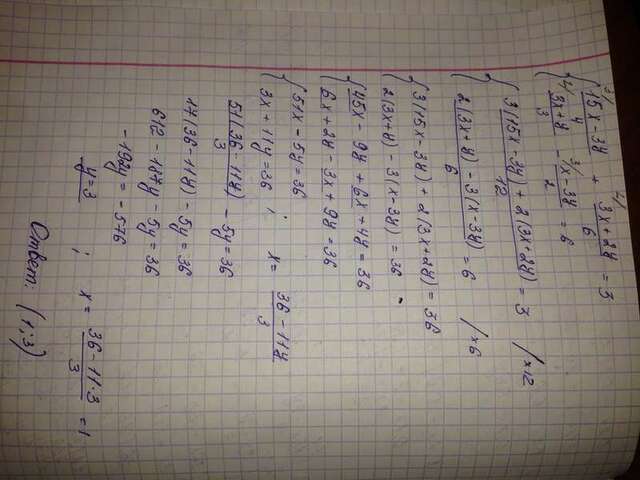 { 3/ 15x-3y / 4 + 2/ 3x+2y / 6 = 3
2/ 3x+y / 3 - 3/ x-3y / 2 = 6
{ 3(15x-3y)+2(3x+2y) / 12 = 3 / ×12
2(3x+y)-3(x-3y) / 6 = 6 / ×6
{ 3(15x-3y)+2(3x+2y)=36
2(3x+y)-3(x-3y)=36
{ 45x-9y+6x+4y=36
6x+2y-3x+9y=36
{ 51x-5y=36
3x+11y=36 ; x= 36-11y / 3
51(36-11y) / 3 - 5y=36
17(36-11y)-5y=36
612-187y-5y=36
-192y=-576
y=3 ; x= 36-11·3 / 3 =1
Ответ: (1;3)